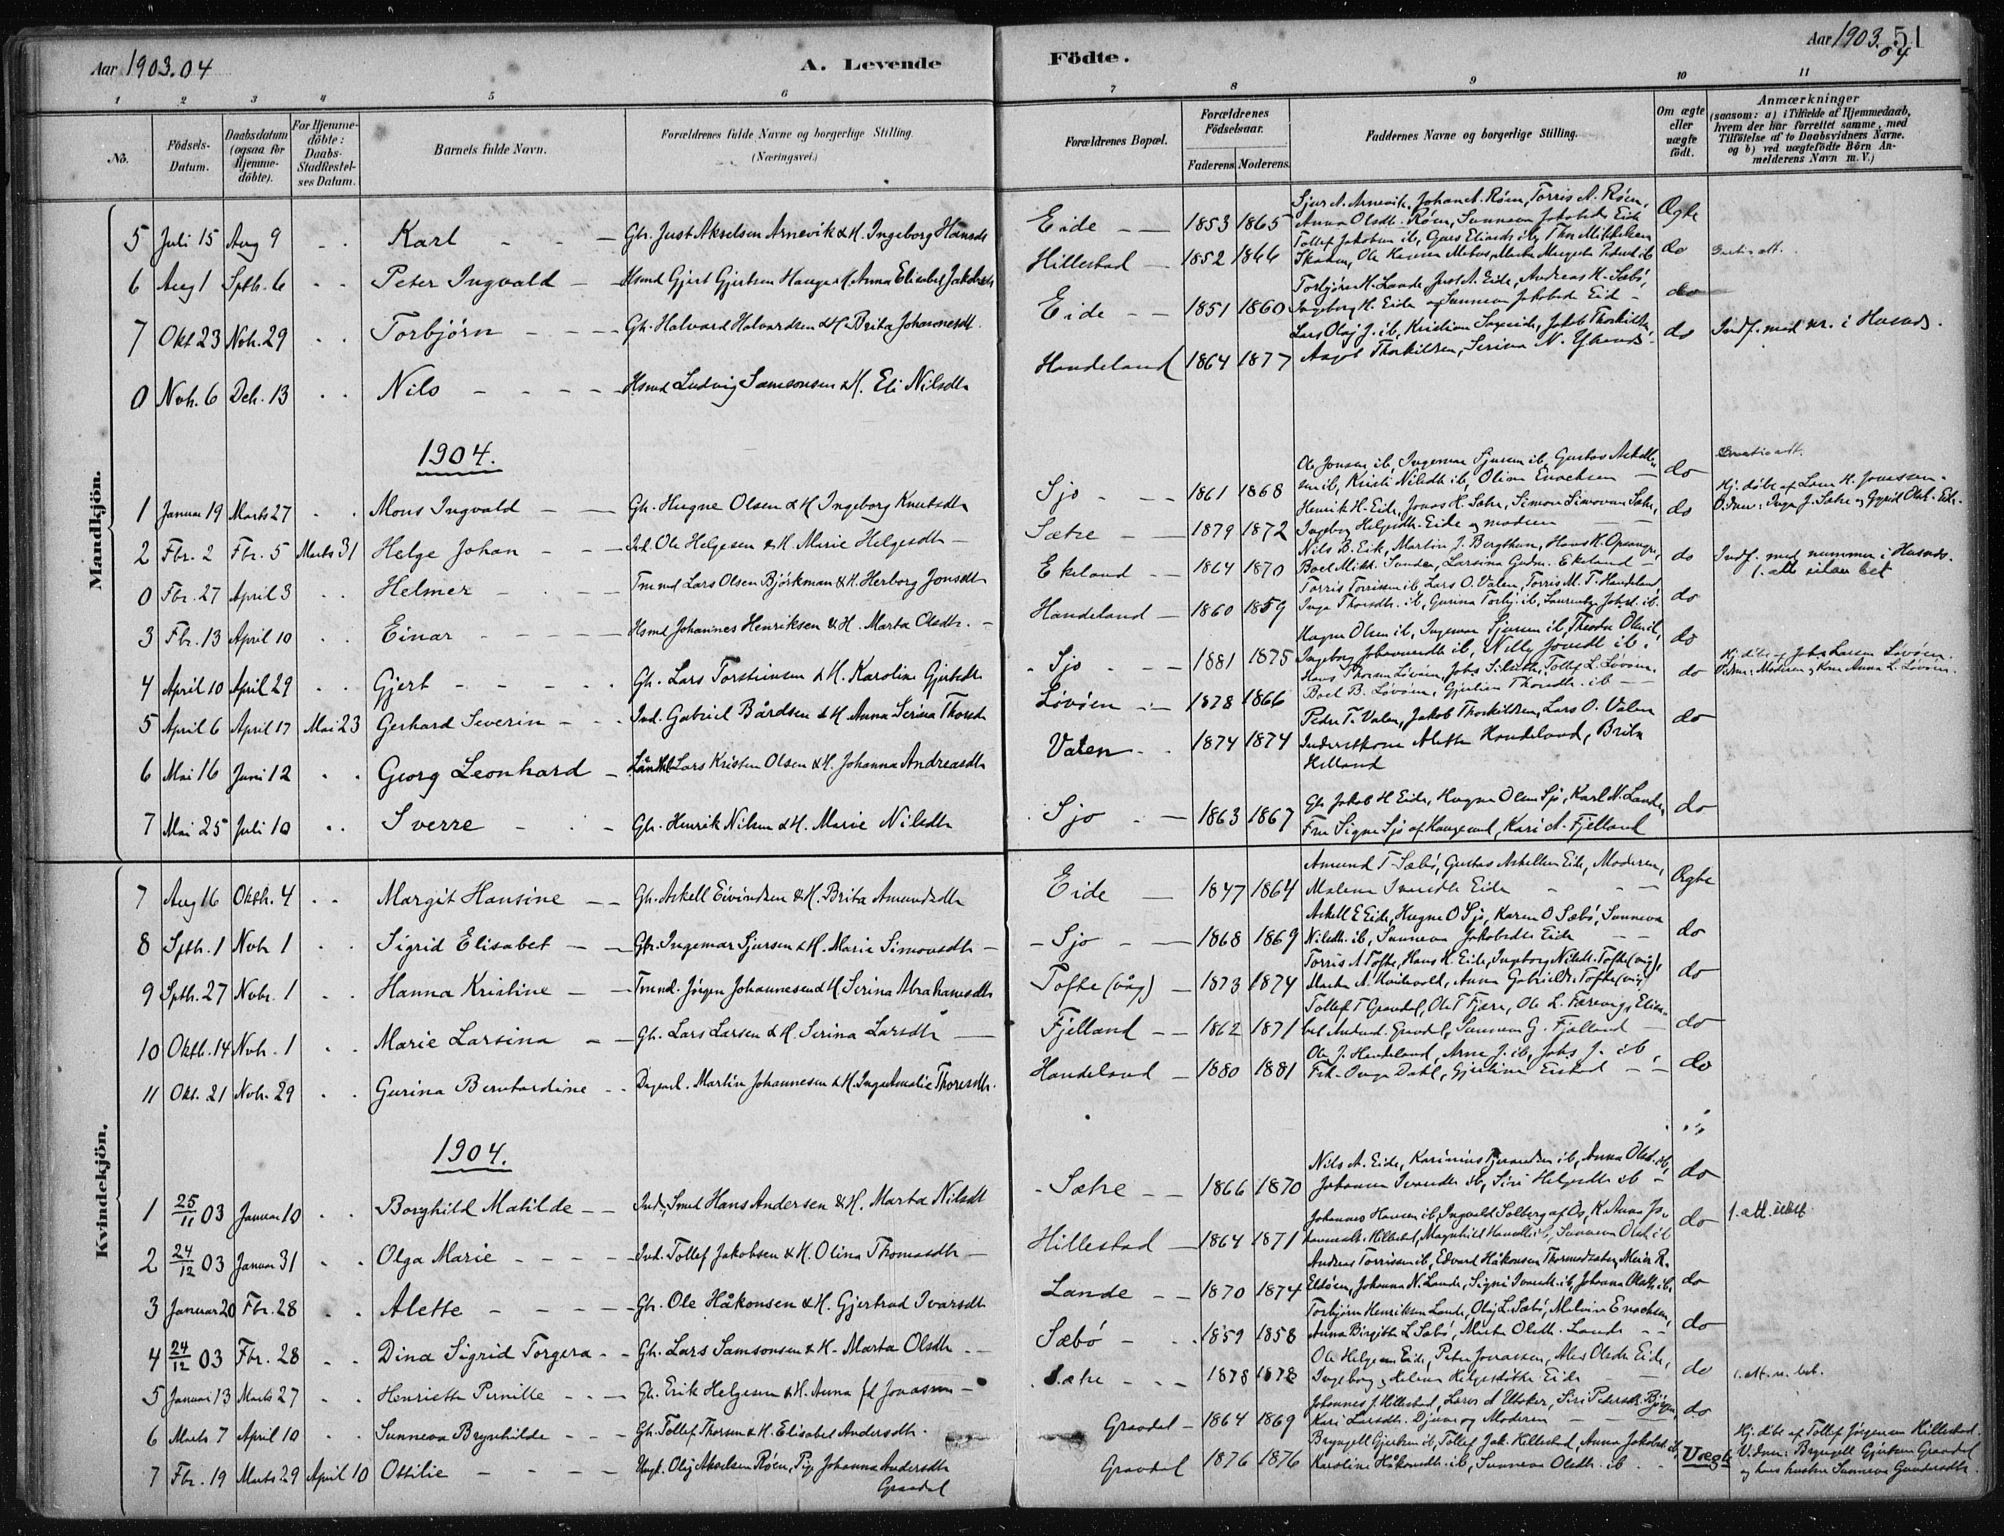 Aar 1903.04
A. Levende
Födte.
Aar 1903.04
51
1 2 3 4 5 6 7 8 9 10 11
No.
Födsels-Datum.
Daabsdatum (ogsaa for Hjemme-döbte).
For Hjemme-döbte: Daabs-Stadfæstel-ses Datum.
Barnets fulde Navn.
Forældrenes fulde Navne og borgerlige Stilling. (Næringsvei.)
Forældrenes Bopæl.
Forældrenes Födselsaar.
Faderens. Moderens.
Faddernes Navne og borgerlige Stilling.
Om ægte eller uægte födt.
Anmærkninger (saasom: a) i Tilfælde af Hjemmedaab, hvem der har forrettet samme, med Tilföielse af to Daabsvidners Navne. og b) ved uægtefödte Börn An-melderens Navn m. V.)
Mandkjön.
5 Juli 15 Aug 9 Karl Gbr. Just Akselsen Arnevik & H. Ingeborg Hansdt Eide 1853 1865 Sjur A. Arnevik, Johan A. Røen, Torris A. Røen, Anna Olsdt. Røen, Sunneva Jakobsdt Eide Ægte
6 Aug 1 Sptb. 6 Peter Ingvald Hsmd Gjert Gjertsen Hauge & H. Anna Elisabet Jakobsdt Hillestad 1852 1866 do
7 Okt 23 Nvb. 29 Torbjørn Gbr. Halvard Halvardsen & H. Brita Johannesdt. Eide 1851 1860 Torbjørn H. Lande, Just A. Eide, Andreas H. Sæbø, Ingeborg H. Eide og Sunneva Jakobsdt Eide do Indf. med nr. i Husnæs.
0 Nvb. 6 Dcb. 13 Nils Hsmd Ludvig Samsonsen & H. Eli Nilsdt Handeland 1864 1877 Lars Olaj J. ib, Kristian, Jakob Thorkildsen, Aagot Thorkildsen, Serina N. do
1904.
1 Januar 19 Marts 27 Mons Ingvald Gbr. Hugne Olsen & H. Ingeborg Knutsdt Sjo 1861 1868 Ole Jonsen ib, Ingemar Sjursen ib, Gustav Askellsen ib, Kristi Nilsdt ib, Oline Enochsen do
2 Fbr. 2 Fbr. 5 Marts 31 Helge Johan Ind. Ole Helgesen & H. Marie Helgesdt Sætre 1879 1872 Henrik H. Eide, Jonas H. Sætre, Simon Simonsen Sætre, Ingeborg Helgesdt. Eide og moderen do Hj. døbt af Lars H. Jonassen. Vidner: Inga J. Sætre og Gyrid Olsdt. Eide.
0 Fbr. 27 April 3 Helmer Tmmd Lars Olsen Bjørkman & H. Herborg Jonsdt Ekeland 1864 1870 Nils B. Eik, Martin J. Bergthun, Hans K. Opsanger, Boel Mikk. Sunden, Larsina Gudm. Ekeland do Indf. med nummer i Husnæs. 1. att uden bet
3 Fbr. 13 April 10 Einar Hsmd Johannes Henriksen & H. Marta Olsdt. Handeland 1860 1859 Torris Torrisen ib, Lars O. Valen, Torris M. T. Handeland, Inga Thorsdt. ib, Gurina Torbj. ib, Laurentse Johsd. ib. do
4 April 10 April 29 Gjert Gbr. Lars Torsteinsen & H. Karoline Gjertsdt Sjo 1881 1875 Hugne Olsen ib, Ingemar Sjursen ib, Theodor Olsen ib, Ingeborg Johannesdt ib, Willy Jonsdt ib. do
5 April 6 April 17 Mai 23 Gerhard Severin Ind. Gabriel Bårdsen & H. Anna Serina Thorsdt Løvøen 1878 1866 Hans Thorsen Løvøen, Johs Silseth, Tollef L. Løvøen, Boel B. Løvøen, Gjertine Thorsdt. ib do Hj. døbt af Johs Larsen Løvøen. Vidner: Moderen og Kone Anna L. Løvøen.
6 Mai 16 Juni 12 Georg Leonhard Lars Kristen Olsen & H. Johanna Andreasdt Valen 1874 1874 Peder T. Valen, Jakob Thorkildsen, Lars O. Valen Inderstkone Alette Handeland, Brita Helland do
7 Mai 25 Juli 10 Sverre Gbr. Henrik Nilsen & H. Marie Nilsdt Sjo 1863 1867 Gbr Jakob H Eide, Hugne Olsen Sjo, Karl N. Lande, Fru Signe Sjo af Haugesund, Kari A. Fjelland do
Kvindekjön.
7 Aug 16 Oktb. 4 Margit Hansine Gbr. Askell Eivindsen & H. Brita Amundsdt Eide 1847 1864 Amund T. Sæbø, Gustav Askellsen Eide, Moderen, Malena Ivarsdt Eide Ægte
8 Sptb. 1 Nvbr 1 Sigrid Elisabet Gbr. Ingemar Sjursen & H. Marie Simonsdt Sjo 1868 1869 Askell E Eide, Hugne O Sjo, Karen O Sæbø, Sunneva Nilsdt. ib, Sunneva Jakobsdt Eide do
9 Sptb. 27 Nvbr. 1 Hanna Kristine Tmmd. Jørgen Johannesen & H. Serina Abrahamsdt Tofte (våg) 1873 1874 Torris A Tofte, Hans H. Eide, Ingeborg Nilsdt. Tofte (våg), Marta A. Hvidevold, Anna Gabrielsdt. Tofte (våg) do
10 Oktb. 14 Nvb. 1 Marie Larsina Gbr. Lars Larsen & H. Serina Larsdt Fjelland 1862 1871 Tollef T Graadal, Ole T Fjære, Ole L. Færevig, Elisabet Andersd. Graadal, Sunneva G. Fjælland do
11 Okt. 21 Nvb. 29 Gurina Berntardine Dagarb. Martin Johannesen & H. Inga Amalie Thorsdt. Handeland 1880 1881 Ole J. Handeland, Arne J. ib, Johs J. ib, Frk. Inga Dahl, Gjertine Eistad do
1904.
1 25/11 03 Januar 10 Borghild Matilde Ind., Smed Hans Andersen & H. Marta Nilsdt Sætre 1866 1870 Nils A. Eide, Karinius Tjerandsen ib, Anna Olsdt. ib, Johanna Ivarsdt ib, Siri Helgesdt ib do
2 24/12 03 Januar 31 Olga Marie Ind. Tollef Jakobsen & H. Olina Thomasdt Hillestad 1864 1871 Johannes Hansen ib, Ingvald Solberg af Os, K. Anna Johannesdt. Hillestad, Magnhild Hansdt ib, Sunneva Olsdt. ib do 1. att. ubet
3 Januar 20 Fbr. 28 Alette Gbr. Ole Håkonsen & H. Gjertrud Ivarsdt Lande 1870 1874 Andreas Torrisen ib, Edvard Håkonsen Thormodsæter, Meier R. Eldøen, Johanna N. Lande, Signi Ivarsdt. ib, Johanna Olsdt. ib. do
4 24/12 03 Fbr. 28 Dina Sigrid Torgera Gbr. Lars Samsonsen & H. Marta Olsdt Sæbø 1859 1858 Torbjørn Henriksen Lande, Olaj L. Sæbø, Malvin Enochsen, Anna Birgitte L Sæbø, Marta Olsdt. Lande do
5 Januar 13 Marts 27 Henriette Pernille Gbr. Erik Helgesen & H. Anna fd Jonassen Sætre 1878 1878 Ole Helgesen Eide, Peter Jonassen, Ales Olsdt Eide, Ingeborg og Helene Helgesdøtre Eide do 1. att. u. bet.
6 Marts 7 April 10 Sunneva Brynhilde Gbr. Tollef Thorsen & H. Elisabet Andersdt. Graadal 1864 1869 Johannes J. Hillestad, Lars A Utaker, Siri Pedersdt. Bjørgen, Kari Larsdt. Djuve og Moderen do
7 Fbr. 19 Marts 29 April 10 Ottilie Ungk. Olaj Akselsen Røen, Pige Johanna Andersdt Graadal Graadal 1876 1876 Bryngell Gjertsen ib, Tollef Jak. Hillestad, Anna Jakobsd. ib, Karoline Håkonsdt. ib, Sunneva Olsdt. ib Uægte Hj. døbt af Tollef Jørgensen Hillestad. Vidner: Bryngell Gjertsen Graadal og hans hustru Sunneva Gundersdt.